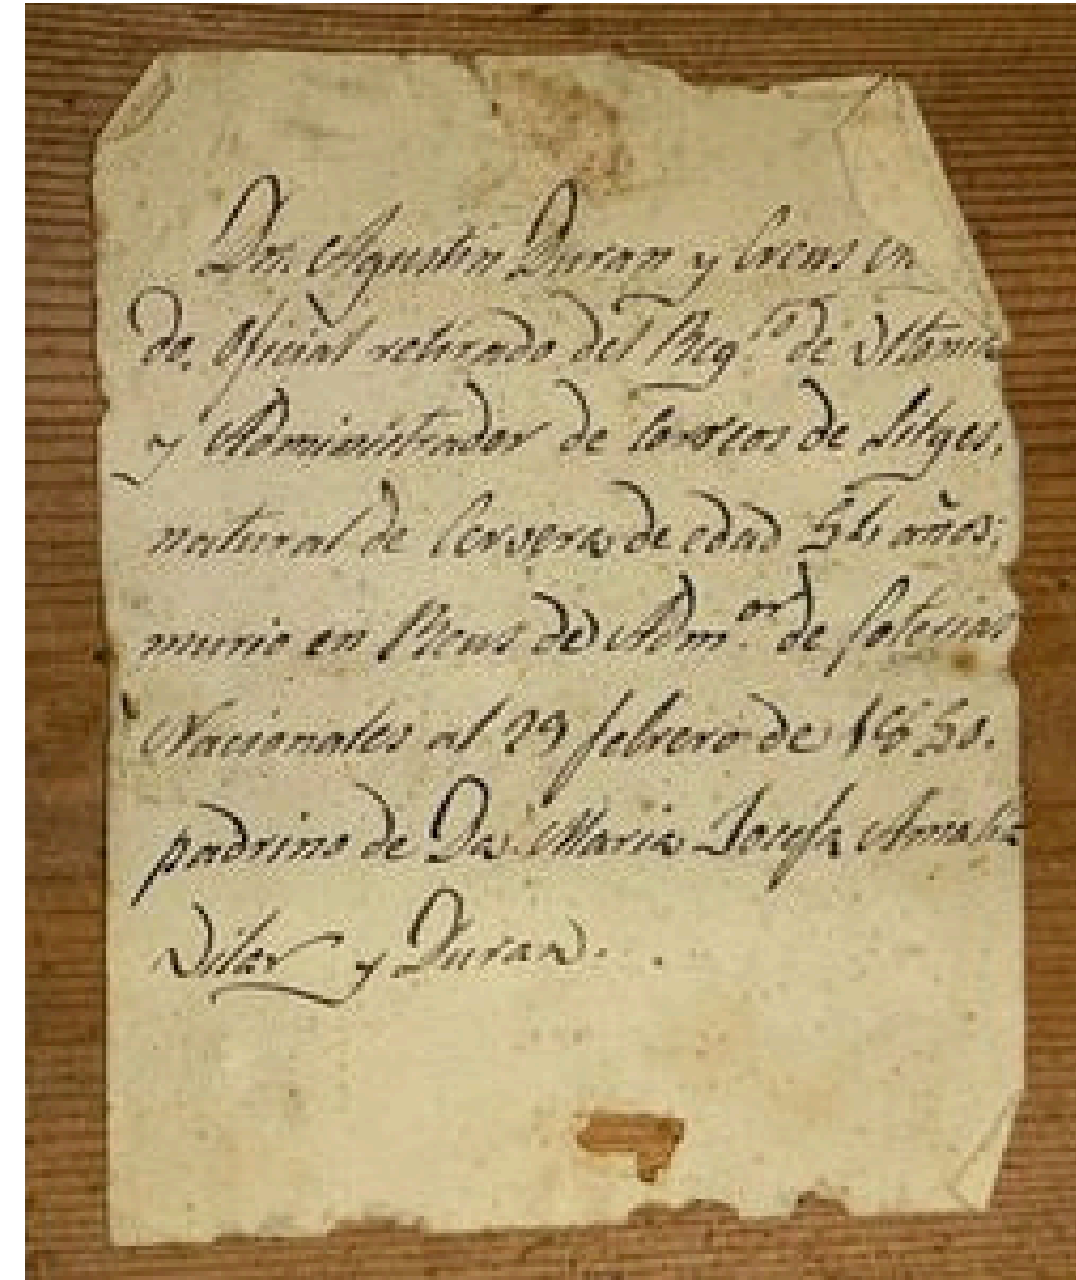 Dn. Agustin Duran y Creus en
do. Oficial retirado del Regto. de Ultonia
y Administrador de Correos de Sitges,
natural de Cervera de edad 56 años;
murio en Reus de Admor. de loterias
Nacionales al 29 febrero de
padrino de Da. Maria Josefa Amalia
Vilar y Duran.